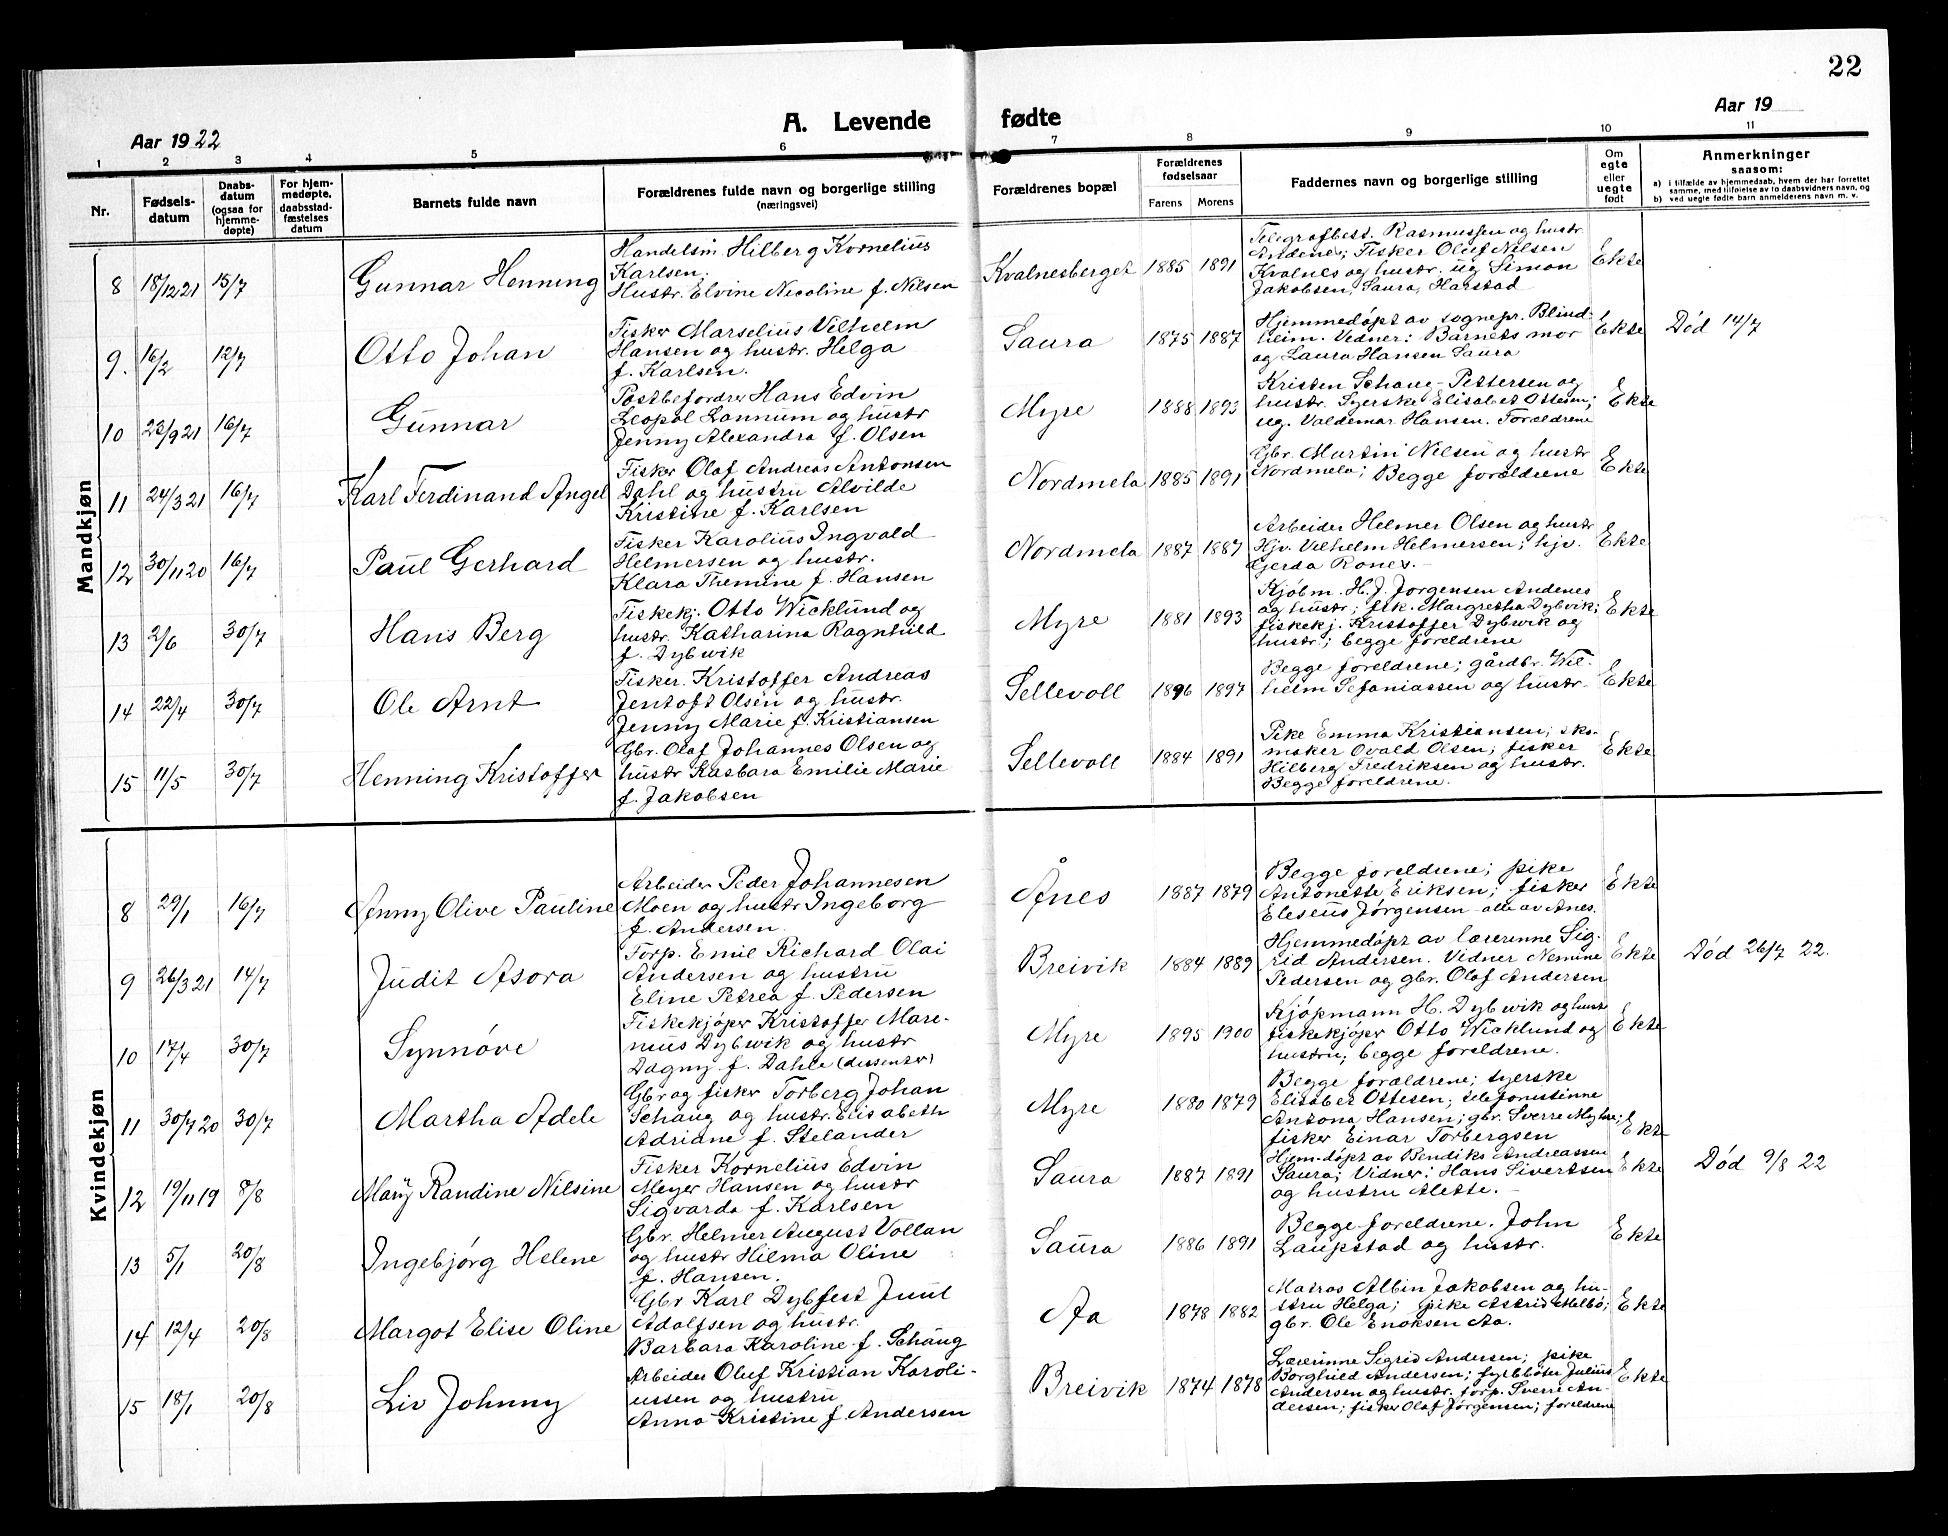 22
A. Levende fødte
Aar 1922
Aar 19
1 2 3 4 5 6 7 8 9 10 11
Nr.
Fødsels-
datum
Daabs-
datum
(ogsaa for
hjemme-
døpte)
For hjem-
medøpte,
daabsstad-
fæstelses
datum
Barnets fulde navn
Forældrenes fulde navn og borgerlige stilling
(næringsvei)
Forældrenes bopæl
Forældrenes
fødselsaar
Farens Morens
Faddernes navn og borgerlige stilling
Om
egte
eller
uegte
født
Anmerkninger
saasom:
a) i tilfælde av hjemmedaab, hvem der har forrettet
samme, med tilføielse av to daabsvidners navn, og
b) ved uegte fødte barn anmelderens navn m. v.
Mandkjøn
8 18/12 21 15/7 Gunnar Henning
Handelsm. Hilberg Kornelius
Karlsen;
Hustr. Elvine Nicoline f. Nilsen
Kvalnesberget 1885 1891
Telegrafbest. Rasmussen og hustr.
Andenes; Fisker Oluf Nilsen
Kvalnes og hustr. ug Simon
Jakobsen, Saura, Harstad
Ekte
9. 16/2 12/7 Otto Johan
Fisker Marselius Vilhelm
Hansen og hustr. Helga
f. Karlsen.
Saura 1875 1887
Hjemmedøpt av sognepr. Blind-
heim. Vidner: Barnets mor
og Laura Hansen Saura
Ekte Død 14/7
10 23/9 21 16/7 Gunnar
Postbefordrer Hans Edvin
Leopol Lonnum og hustr
Jenny Alexandra f. Olsen
Myre 1888 1893
Kristen Schaug-Pettersen og
hustr. Syerske Elisabet Ottesen;
ug. Valdemar Hansen. Foreldrene
Ekte
11 24/3 21 16/7 Karl Ferdinand Angel
Fisker Olaf Andreas Antonsen
Dahl og hustru Alvilde
Kristine f. Karlsen
Nordmela 1885 1891
Gbr. Martin Nilsen og hustr
Nordmela; Begge forældrene
Ekte
12 30/11 20 16/7 Paul Gerhard
Fisker Karolius Ingvald
Helmersen og hustr.
Klara Themine f. Hansen
Nordmela 1887 1887
Arbeider Helmer Olsen og hustr
Hjv. Vilhelm Helmersen; hjv.
Gerda Rones.-
Ekte
13 2/6 30/7 Hans Berg
Fiskekj. Otto Wicklund og
hustr. Katharina Ragnhild
f. Dybwik
Myre 1881 1893
Kjøbm. H. J. Jorgensen Andenes
og hustr; frk. Margretha Dybvik;
fiskekj. Kristoffer Dybwik og
hustr.; begge foreldrene
Ekte
14 22/4 30/7 Ole Arnt
Fisker. Kristoffer Andreas
Jentoft Olsen og hustr.
Jenny Marie f. Kristiansen
Sellevoll 1896 1897
Begge foreldrene; gårdbr. Wil-
helm Sefaniassen og hustr.
Ekte
15 11/5 30/7 Henning Kristoffer
Gbr. Olaf Johannes Olsen og
hustr Kasbara Emilie Marie
f. Jakobsen
Sellevoll 1884 1891
Pike Emma Kristiansen; sko-
maker Ovald Olsen; fisker
Hilberg Fredriksen og hustr.
Begge foreldrene.
Ekte
Kvindekjøn
8 29/1 16/7 Anny Olive Pauline
Arbeider Peder Johannesen
Moen og hustr Ingeborg
f. Andersen
Ånes 1887 1879
Begge foreldrene; pike
Antonette Eriksen; fisker
Eleseus Jørgensen alle av Ånes.
Ekte
9 26/3 21 14/7 Judit Asora
Forp. Emil Richard Olai
Andersen og hustru
Eline Petrea f. Pedersen
Breivik 1884 1889
Hjemmedøpt av lærerinne Sig-
rid Andersen. Vidner Nemine
Pedersen og gbr. Olaf Andersen
Ekte Død 26/7 22.
10 17/4 30/7 Synnøve
Fiskekjøper Kristoffer Mare-
nius Dybwik og hustr
Dagny f. Dahle (dissenter)
Myre 1895 1900
Kjøpmann H. Dybwik og hustr
fiskekjøper Otto Wicklund og
hustru; begge foreldrene.
Ekte
11 30/7 20 30/7 Martha Adele
Gbr og fisker Torberg Johan
Schaug og hustr. Elisabeth
Adriane f. Stelander
Myre 1880 1879
Begge forældrene; syerske
Elisabet Ottesen; telefonistinne
Antona Hansen; gbr. Sverre Myhre;
fisker Einar Torbergsen
Ekte
12 19/11 19 8/8 Mary Randine Nilsine
Fisker Kornelius Edvin
Meyer Hansen og hustr
Sigvarda f. Karlsen
Saura 1887 1891
Hjem.døpt av Bendiks Andreassen
Saura; Vidner: Hans Sivertsen
og hustru Alette.-
Ekte Død 9/8 22
13 5/1 20/8 Ingebjørg Helene
Gbr. Helmer August Vollan
og hustr Hilma Oline
f. Hansen.
Saura 1886 1891
Begge foreldrene. John
Laupstad og hustr.
Ekte
14 12/4 20/8 Margot Elise Oline
Gbr Karl Dybfest Juul
Adolfsen og hustr.
Barbara Karoline f. Schaug
Aa 1878 1882
Matros Albin Jakobsen og hu-
stru Helga; pike Astrid Melbø;
gbr. Ole Enoksen Aa.
Ekte
15 18/1 20/8 Liv Johnny
Arbeider Oluf Kristian Karoli-
ussen og hustru
Anna Kristine f. Andersen
Breivik 1874 1878
Lærerinne Sigrid Andersen; pike
Borghild Andersen; fyrbøter Julius
Andersen og hustr. forp. Sverre An-
dersen; fisker Olaf Jørgensen; foreldrene
Ekte